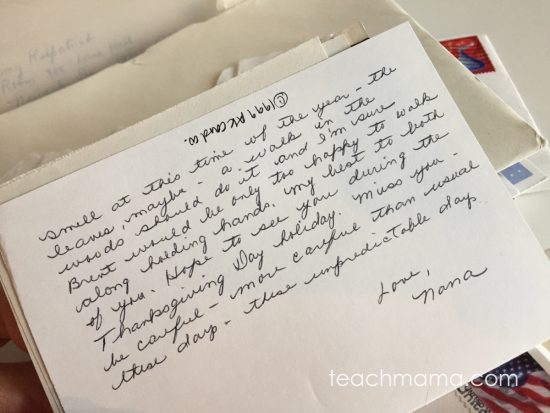 ©1999 AK Card Co.
smell at this time of the year - the
leaves, maybe - a walk in the
woods should do it and I'm sure
Brent would be only too happy to walk
along holding hands. My best to both
of you. Hope to see you during the
Thanksgiving Day holiday. Miss you -
be careful - more careful than usual
these days - these unpredictable days.
Love,
Nana
teachmama.com